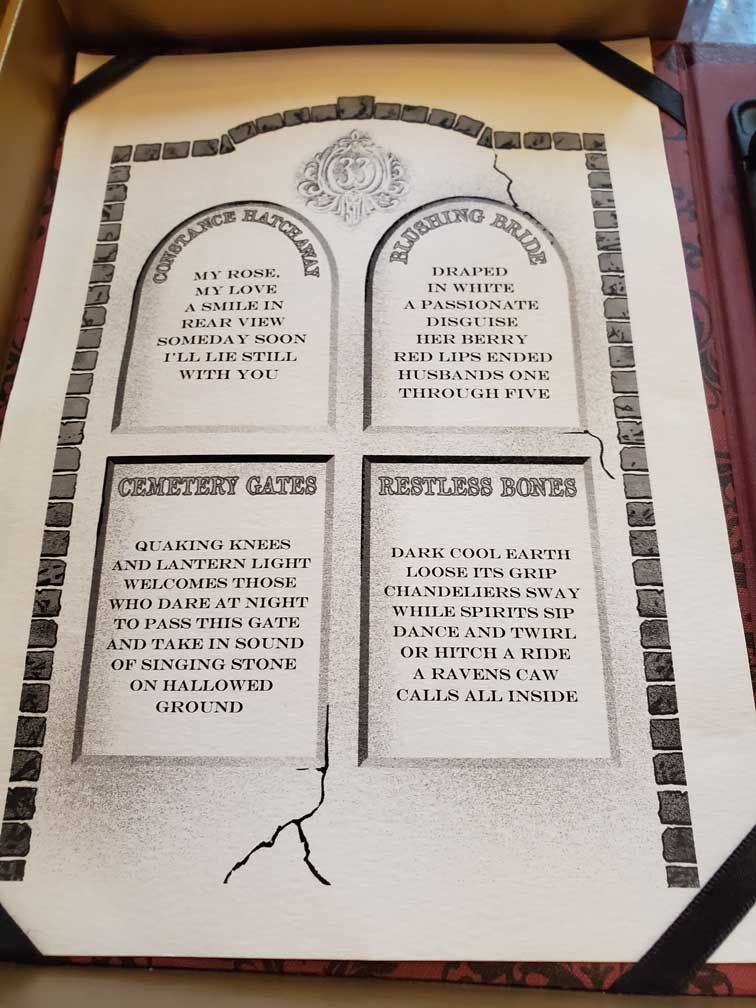 33
CONSTANCE HATCHAWAY
MY ROSE,
MY LOVE
A SMILE IN
REAR VIEW
SOMEDAY SOON
I'LL LIE STILL
WITH YOU
BLUSHING BRIDE
DRAPED
IN WHITE
A PASSIONATE
DISGUISE
HER BERRY
RED LIPS ENDED
HUSBANDS ONE
THROUGH FIVE
CEMETERY GATES
QUAKING KNEES
AND LANTERN LIGHT
WELCOMES THOSE
WHO DARE AT NIGHT
TO PASS THIS GATE
AND TAKE IN SOUND
OF SINGING STONE
ON HALLOWED
GROUND
RESTLESS BONES
DARK COOL EARTH
LOOSE ITS GRIP
CHANDELIERS SWAY
WHILE SPIRITS SIP
DANCE AND TWIRL
OR HITCH A RIDE
A RAVENS CAW
CALLS ALL INSIDE